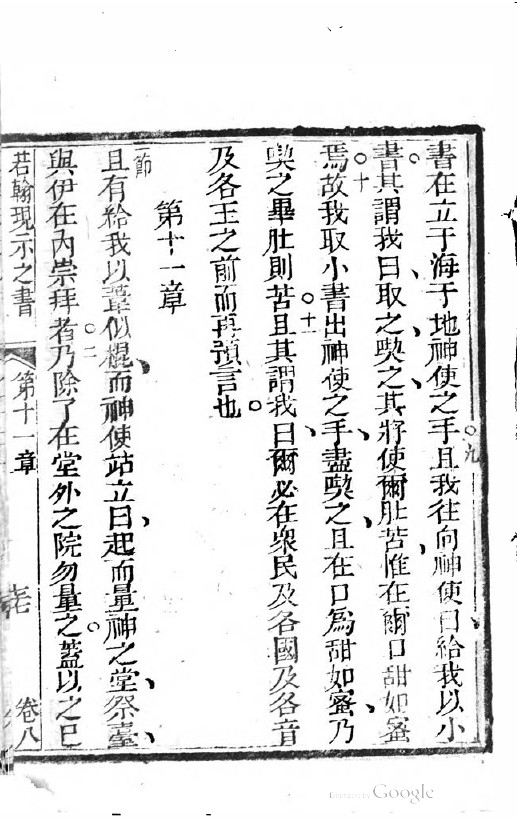 書在立于海于地神使之手且我往向神使曰給我以小
書其謂我曰取之喫之其將使爾肚苦惟在爾口甜如蜜
焉故我取小書出神使之手盡喫之且在口爲甜如蜜乃
喫之畢肚則苦且其謂我曰爾必在衆民及各國及各音
及各王之前而再預言也
第十一章
且有給我以葦似棍而神使站立曰起而量神之堂祭臺
與伊在內崇拜者乃除了在堂外之院勿量之蓋以之已
若翰現示之書 第十一章 卷八
九
十
十一
一節
二
Google